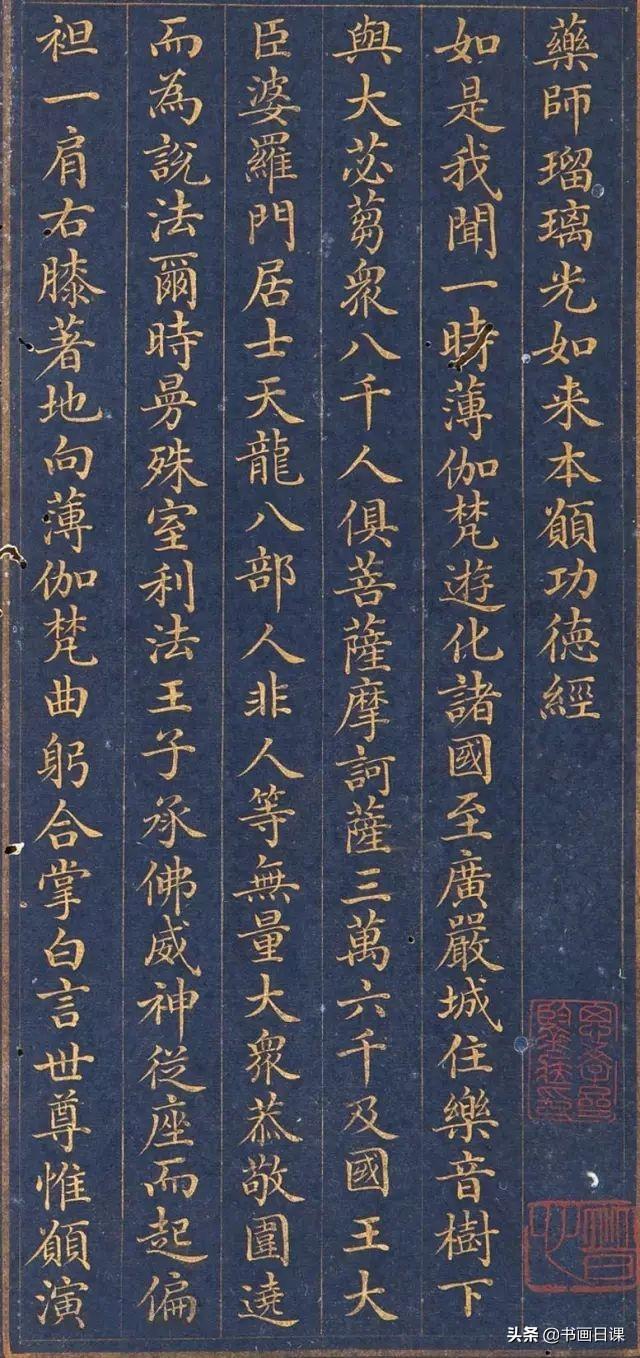 藥師瑠璃光如来本願功徳經
如是我聞一時薄伽梵遊化諸國至廣嚴城住樂音樹下
與大苾蒭衆八千人俱菩薩摩訶薩三萬六千及國王大
臣婆羅門居士天龍八部人非人等無量大衆恭敬圍遶
而為說法爾時曼殊室利法王子承佛威神從座而起偏
袒一肩右膝著地向薄伽梵曲躬合掌白言世尊惟願演
头条 @书画日课